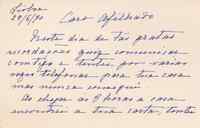 Lisboa
29/6/90
Caro Afilhado
Neste dia de tão gratas
recordações quiz comunicar
contigo e tentei por varias
vezes telefonar para tua casa
mas nunca consegui
Ao chegar às 8 horas a casa
encontrei a tua carta, tentei